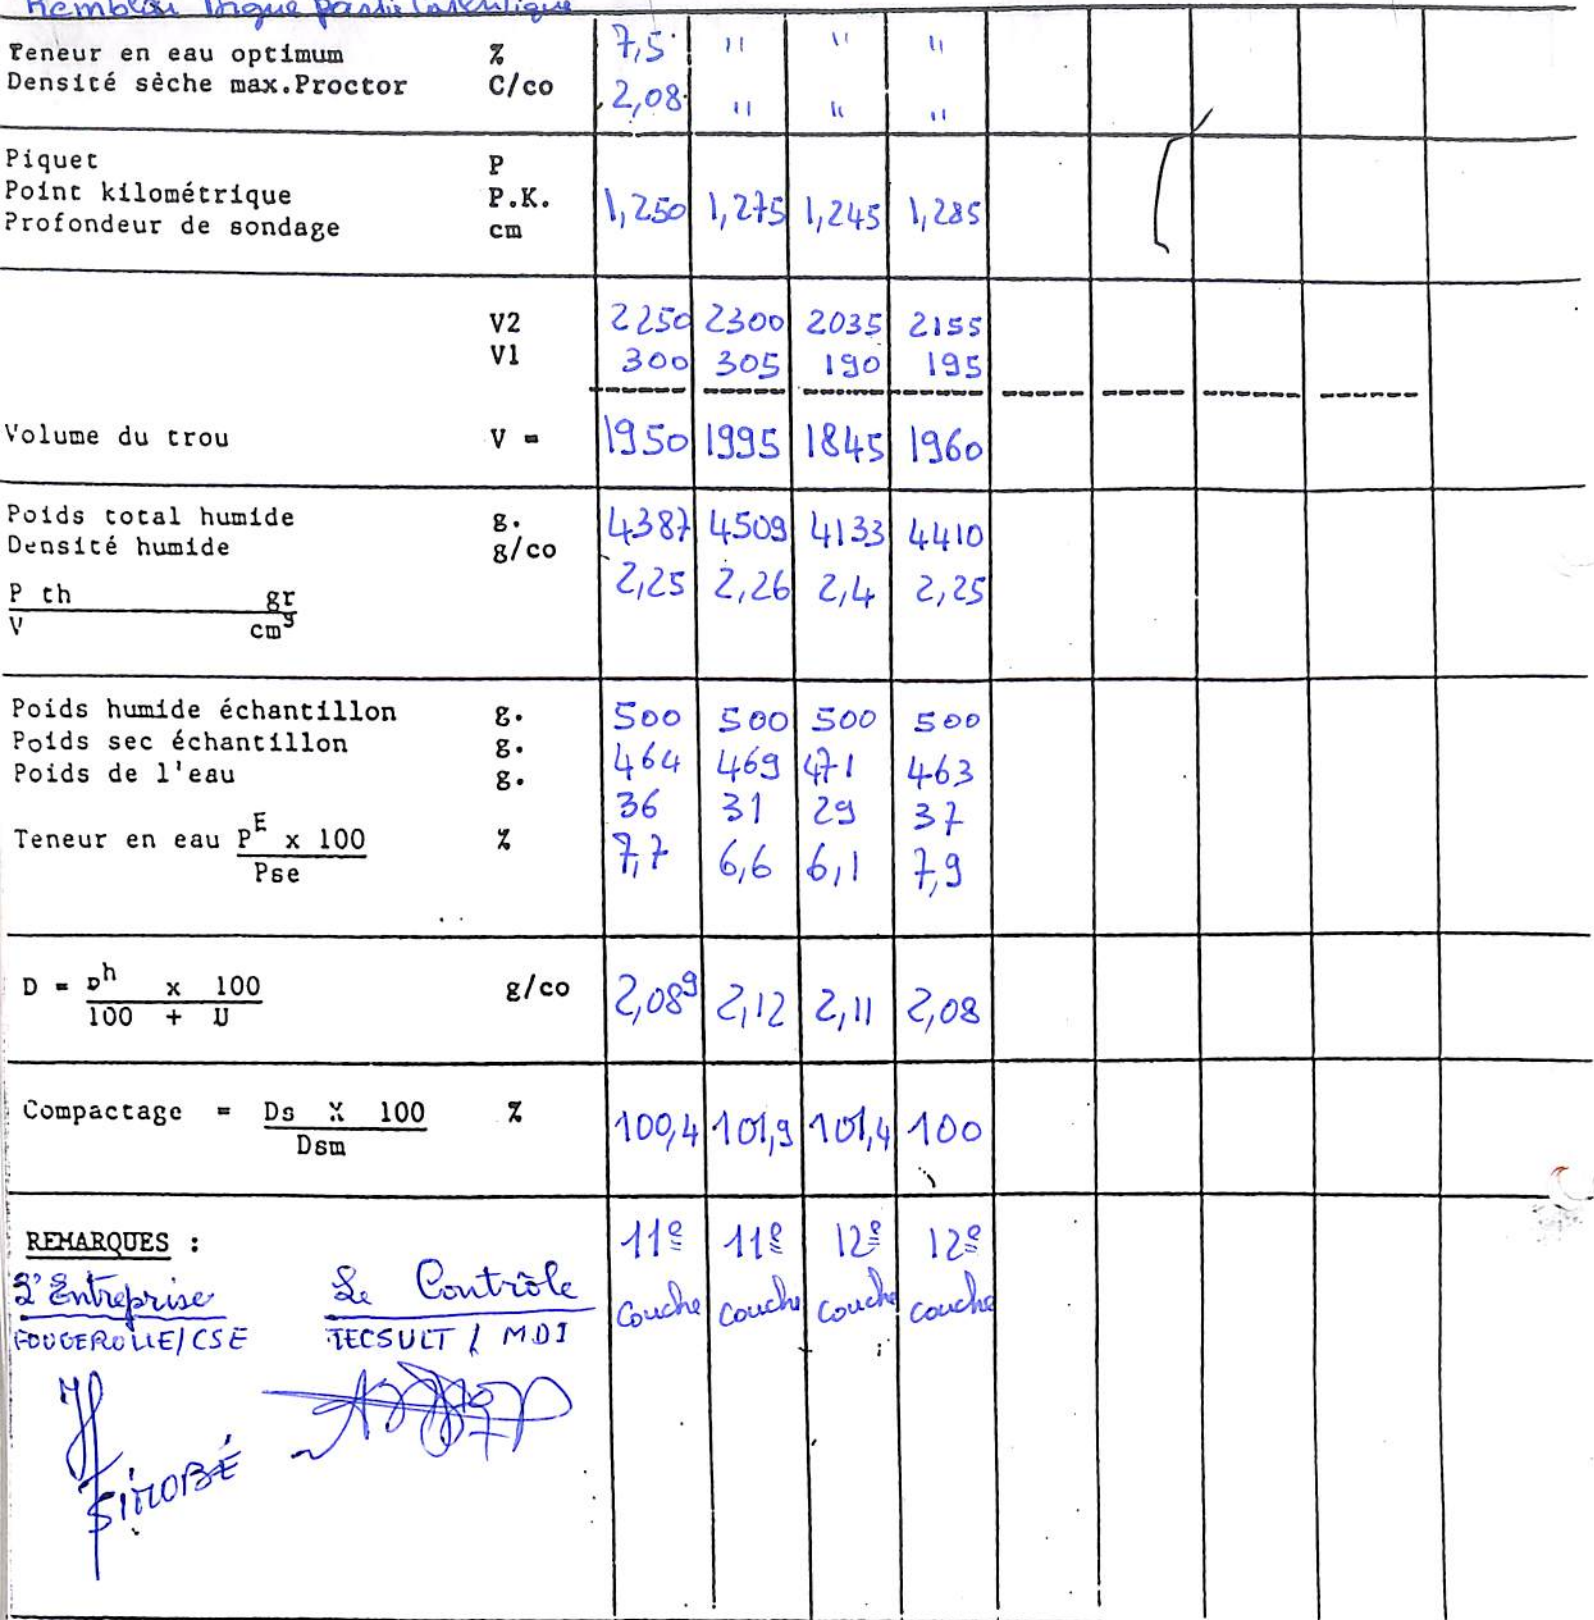 Remblai Digue partie latéritique
Teneur en eau optimum % 7,5 " " "
Densité sèche max.Proctor C/co 2,08 " " "
Piquet P
Point kilométrique P.K. 1,250 1,275 1,245 1,285
Profondeur de sondage cm
V2 2250 2300 2035 2155
V1 300 305 190 195
Volume du trou V = 1950 1995 1845 1960
Poids total humide g. 4387 4509 4133 4410
Densité humide g/co 2,25 2,26 2,4 2,25
P th gr
V cm3
Poids humide échantillon g. 500 500 500 500
Poids sec échantillon g. 464 469 471 463
Poids de l'eau g. 36 31 29 37
Teneur en eau PE x 100 % 7,7 6,6 6,1 7,9
Pse
D = Dh x 100 g/co 2,089 2,12 2,11 2,08
100 + U
Compactage = Ds X 100 % 100,4 101,9 101,4 100
Dsm
REMARQUES : 11e 11e 12e 12e
L'Entreprise Le Contrôle couche couche couche couche
FOUGEROLLE/CSE TECSULT / MDI
SIMOBÉ